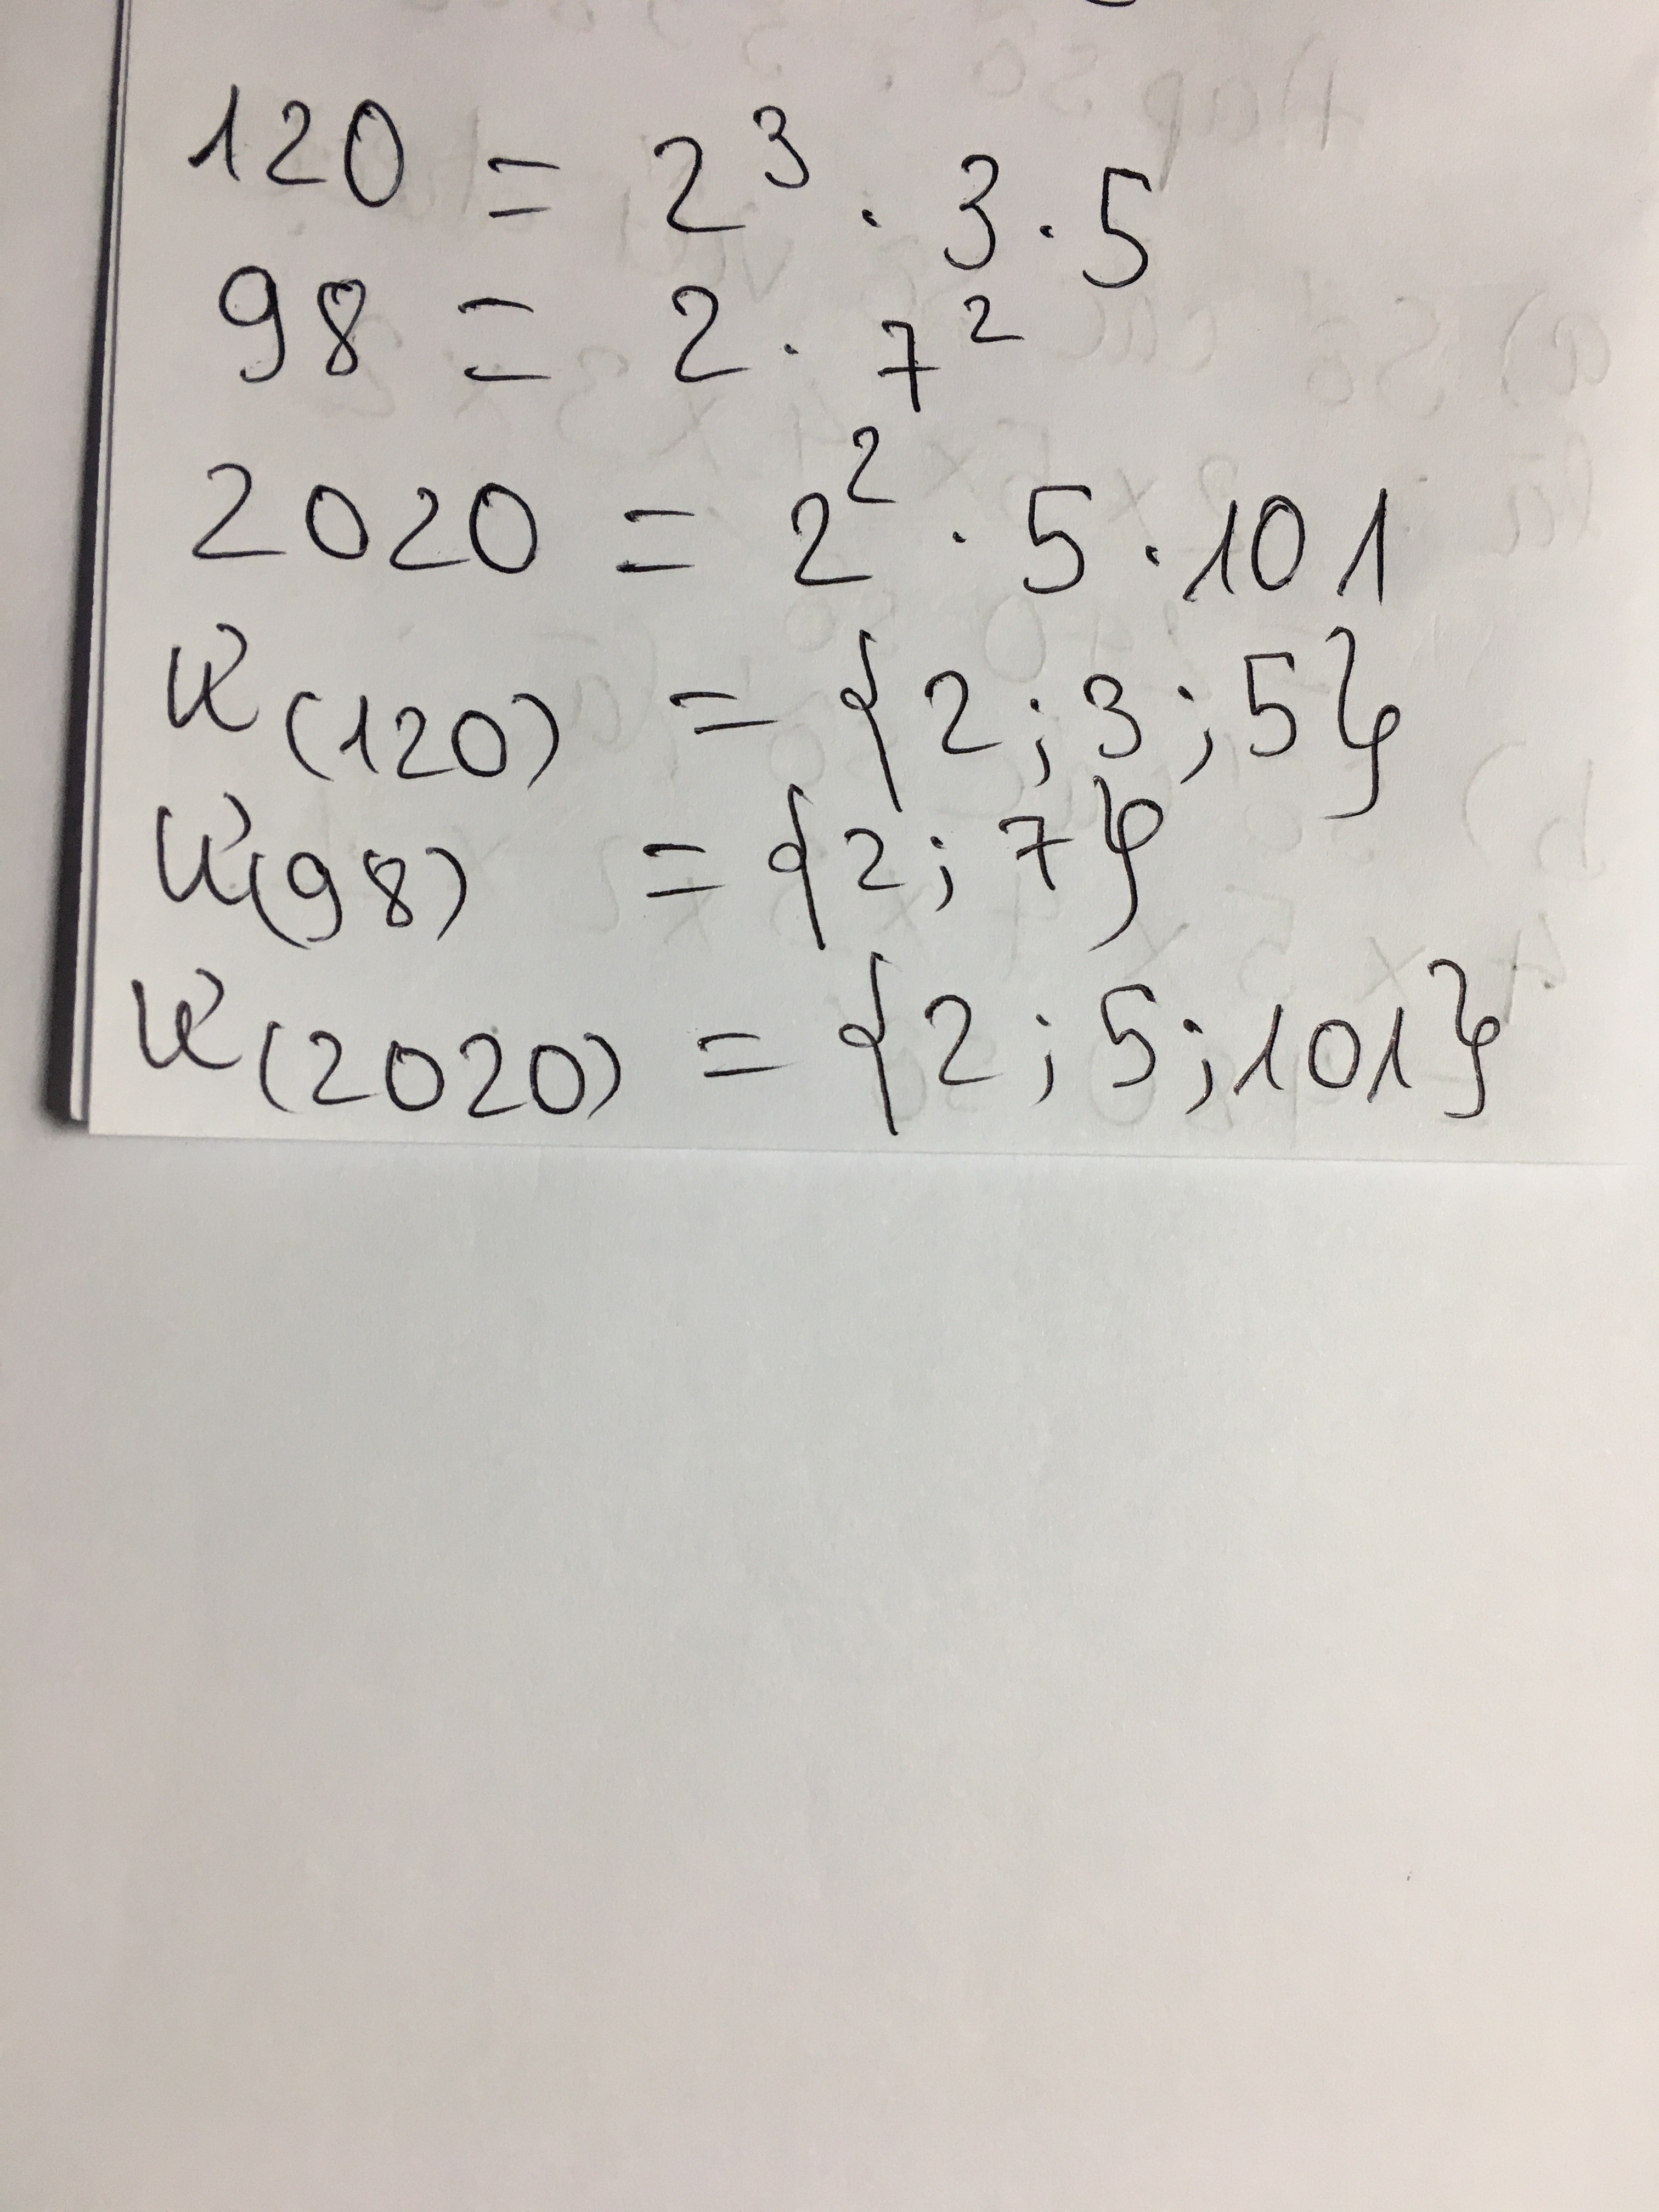 120 = 2³ · 3 · 5
98 = 2 · 7²
2020 = 2² · 5 · 101
Ư(120) = {2; 3; 5}
Ư(98) = {2; 7}
Ư(2020) = {2; 5; 101}